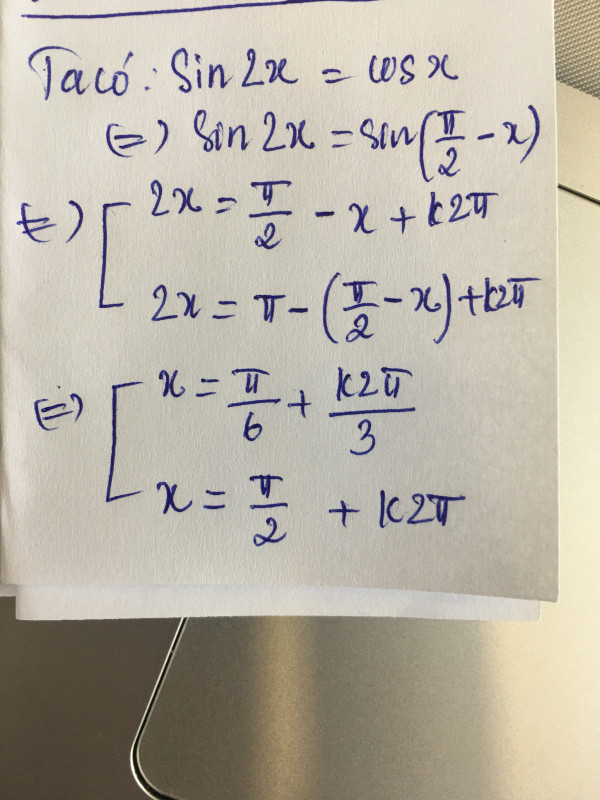 Ta có: Sin 2x = cos x
(=) Sin 2x = sin(π/2 - x)
(=) [ 2x = π/2 - x + k2π
2x = π - (π/2 - x) + k2π
(=) [ x = π/6 + k2π/3
x = π/2 + k2π